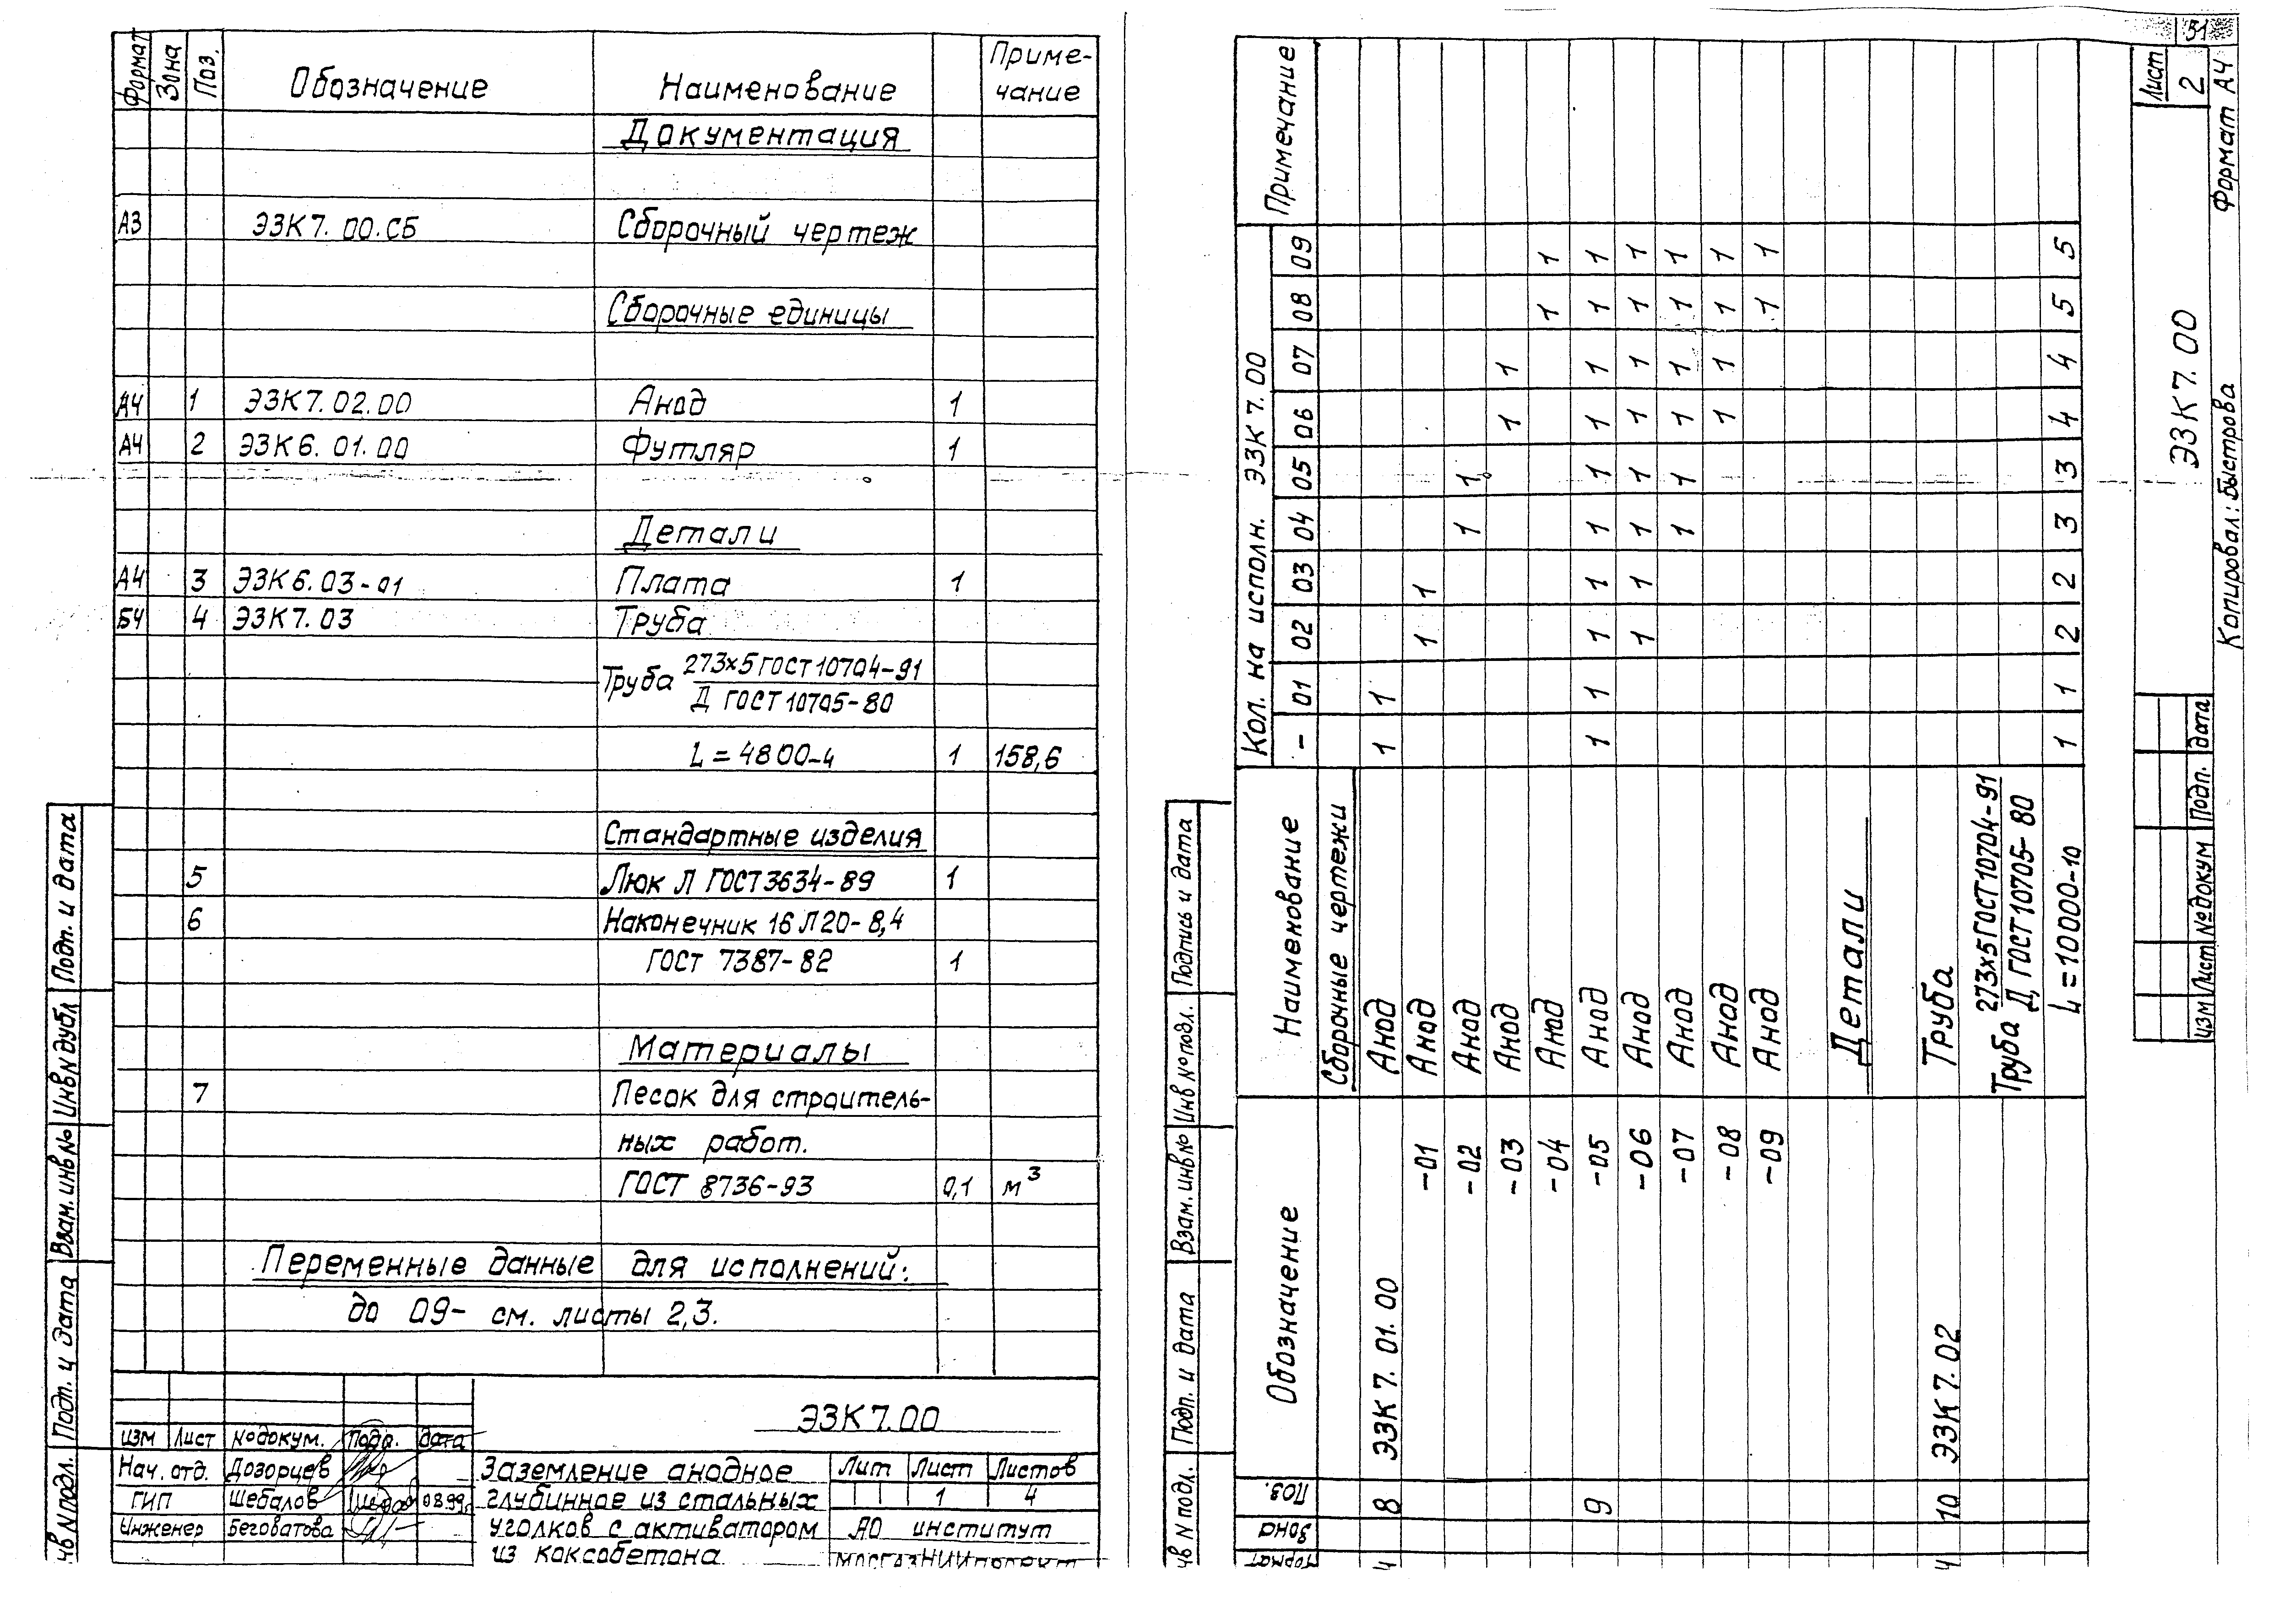 Формат Зона Поз. Обозначение Наименование Приме-
чание
Документация
А3 ЭЗК7.00.СБ Сборочный чертеж
Сборочные единицы
А4 1 ЭЗК7.02.00 Анод 1
А4 2 ЭЗК6.01.00 Футляр 1
Детали
А4 3 ЭЗК6.03-01 Плата 1
БЧ 4 ЭЗК7.03 Труба
Труба 273х5 ГОСТ 10704-91
Д ГОСТ 10705-80
L=4800-4 1 158,6
Стандартные изделия
5 Люк Л ГОСТ3634-89 1
6 Наконечник 16Л20-8,4
ГОСТ 7387-82 1
Материалы
7 Песок для строитель-
ных работ.
ГОСТ 8736-93 0,1 м³
Переменные данные для исполнений:
до 09- см. листы 2,3.
ЭЗК7.00
изм Лист №докум. Подп. дата
Нач. отд. Дозорцев
ГИП Шебалов 08.99г.
Инженер Беговатова
Заземление анодное
глубинное из стальных
уголков с активатором
из коксобетона
Лит Лист Листов
1 4
АО институт
МосгазНИИпроект
Подп. и дата
Инв N дубл
Взам. инв №
Подп. и дата
нв N подл.
Формат Зона Поз. Обозначение Наименование Кол. на исполн. ЭЗК7.00 Примечание
- 01 02 03 04 05 06 07 08 09
Сборочные чертежи
8 ЭЗК7.01.00 Анод 1 1
-01 Анод 1 1
-02 Анод 1 1
-03 Анод 1 1
-04 Анод 1 1
9 -05 Анод 1 1 1 1 1 1 1 1 1 1
-06 Анод 1 1 1 1 1 1 1 1
-07 Анод 1 1 1 1 1 1
-08 Анод 1 1 1 1
-09 Анод 1 1
Детали
10 ЭЗК7.02 Труба
Труба 273х5 ГОСТ 10704-91
Д ГОСТ 10705-80
L=10000-10 1 1 2 2 3 3 4 4 5 5
нв N подл.
Подп. и дата
Взам. инв №
Инв № подл.
Подпись и дата
изм Лист №докум Подп. дата
ЭЗК7.00
Лист
2
51
Копировал: Быстрова Формат А4